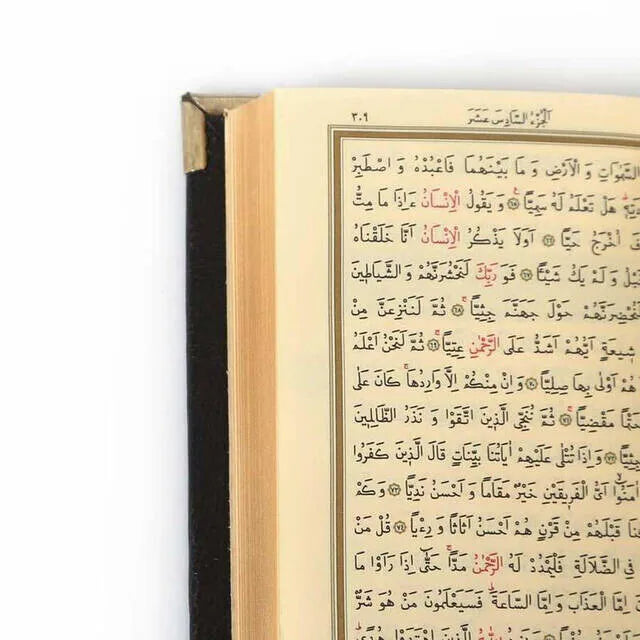 ٣٠٩ اَلْجُزْءُ السَّادِسَ عَشَرَ
السَّمٰوَاتِ وَ الْاَرْضِ وَ مَا بَيْنَهُمَا فَاعْبُدْهُ وَ اصْطَبِرْ
هَلْ تَعْلَمُ لَهُ سَمِيًّا ﴿٦٥﴾ وَ يَقُولُ الْاِنْسَانُ ءَاِذَا مَا مِتُّ
اُخْرَجُ حَيًّا ﴿٦٦﴾ اَوَلَا يَذْكُرُ الْاِنْسَانُ اَنَّا خَلَقْنَاهُ
وَ لَمْ يَكُ شَيْئًا ﴿٦٧﴾ فَوَ رَبِّكَ لَنَحْشُرَنَّهُمْ وَ الشَّيَاطِينَ
لَنُحْضِرَنَّهُمْ حَوْلَ جَهَنَّمَ جِثِيًّا ﴿٦٨﴾ ثُمَّ لَنَنْزِعَنَّ مِنْ
شِيعَةٍ اَيُّهُمْ اَشَدُّ عَلَى الرَّحْمٰنِ عِتِيًّا ﴿٦٩﴾ ثُمَّ لَنَحْنُ اَعْلَمُ
هُمْ اَوْلٰى بِهَا صِلِيًّا ﴿٧٠﴾ وَ اِنْ مِنْكُمْ اِلَّا وَارِدُهَا كَانَ عَلٰى
حَتْمًا مَقْضِيًّا ﴿٧١﴾ ثُمَّ نُنَجِّي الَّذِينَ اتَّقَوْا وَ نَذَرُ الظَّالِمِينَ
جِثِيًّا ﴿٧٢﴾ وَ اِذَا تُتْلٰى عَلَيْهِمْ اٰيَاتُنَا بَيِّنَاتٍ قَالَ الَّذِينَ كَفَرُوا
اٰمَنُوا اَىُّ الْفَرِيقَيْنِ خَيْرٌ مَقَامًا وَ اَحْسَنُ نَدِيًّا ﴿٧٣﴾ وَ كَمْ
قَبْلَهُمْ مِنْ قَرْنٍ هُمْ اَحْسَنُ اَثَاثًا وَ رِءْيًا ﴿٧٤﴾ قُلْ مَنْ
فِى الضَّلَالَةِ فَلْيَمْدُدْ لَهُ الرَّحْمٰنُ مَدًّا حَتّٰى اِذَا رَاَوْا مَا
اِمَّا الْعَذَابَ وَ اِمَّا السَّاعَةَ فَسَيَعْلَمُونَ مَنْ هُوَ شَرٌّ